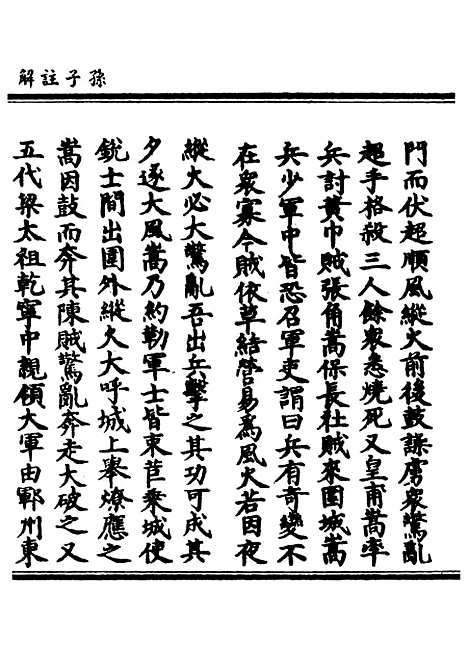 孫子註解
門而伏超順風縱火前後鼓譟虜衆驚亂
超手格殺三人餘衆悉燒死又皇甫嵩率
兵討黃巾賊張角嵩保長社賊來圍城嵩
兵少軍中皆恐召軍吏謂曰兵有奇變不
在衆寡今賊依草結營易爲風火若因夜
縱火必大驚亂吾出兵擊之其功可成其
夕遂大風嵩乃約勒軍士皆束苣乘城使
銳士間出圍外縱火大呼城上舉燎應之
嵩因鼓而奔其陳賊驚亂奔走大破之又
五代梁太祖乾寧中親領大軍由鄆州東